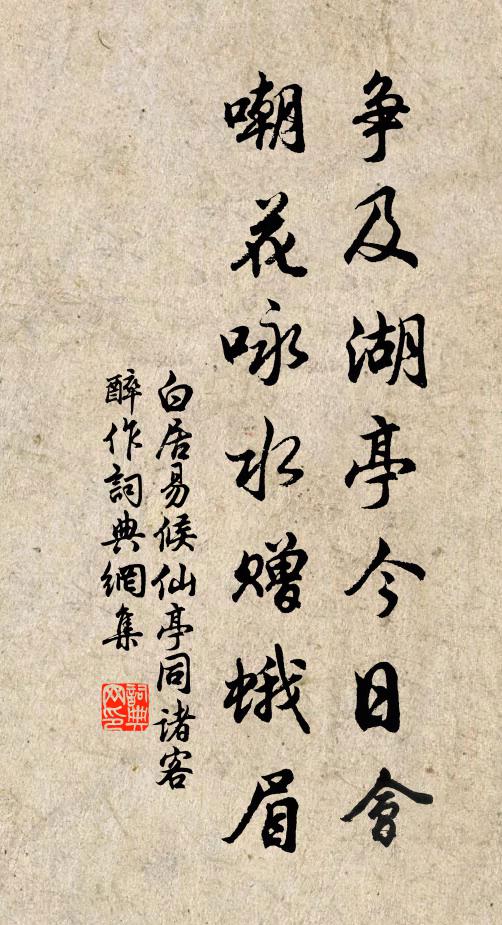 争及湖亭今日會
嘲花咏水赠蛾眉
白居易候仙亭同諸客
醉作詞典網集
詞典网印